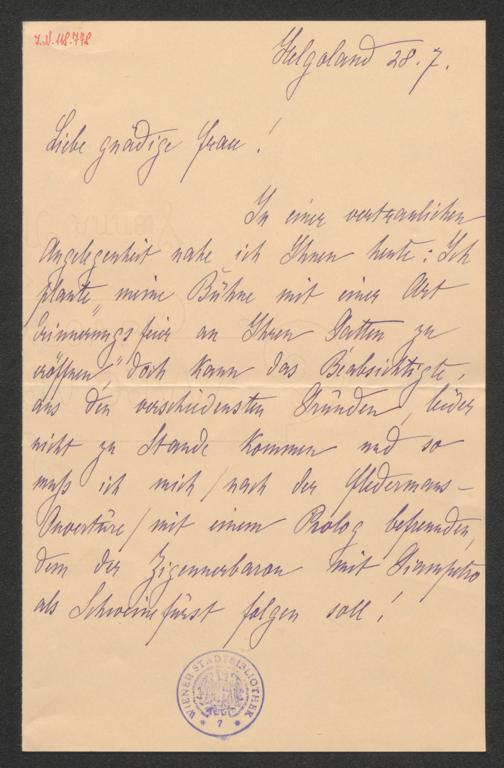 J.N. 118.778
Helgoland 28.7.
Liebe gnädige Frau!
In einer vertraulichen
Angelegenheit nahe ich Ihnen heute: Ich
plante „meine Bühne mit einer Art
Erinnerungsfeier an Ihren Gatten zu
eröffnen," doch kann das Beabsichtigte,
aus den verschiedensten Gründen, leider
nicht zu Stande kommen und so
muß ich mich / nach der Fledermaus-
Ouvertüre / mit einem Prolog befreunden,
dem der Zigeunerbaron mit Giampietro
als Schweinefürst folgen soll!
WIENER STADTBIBLIOTHEK
* 7 *